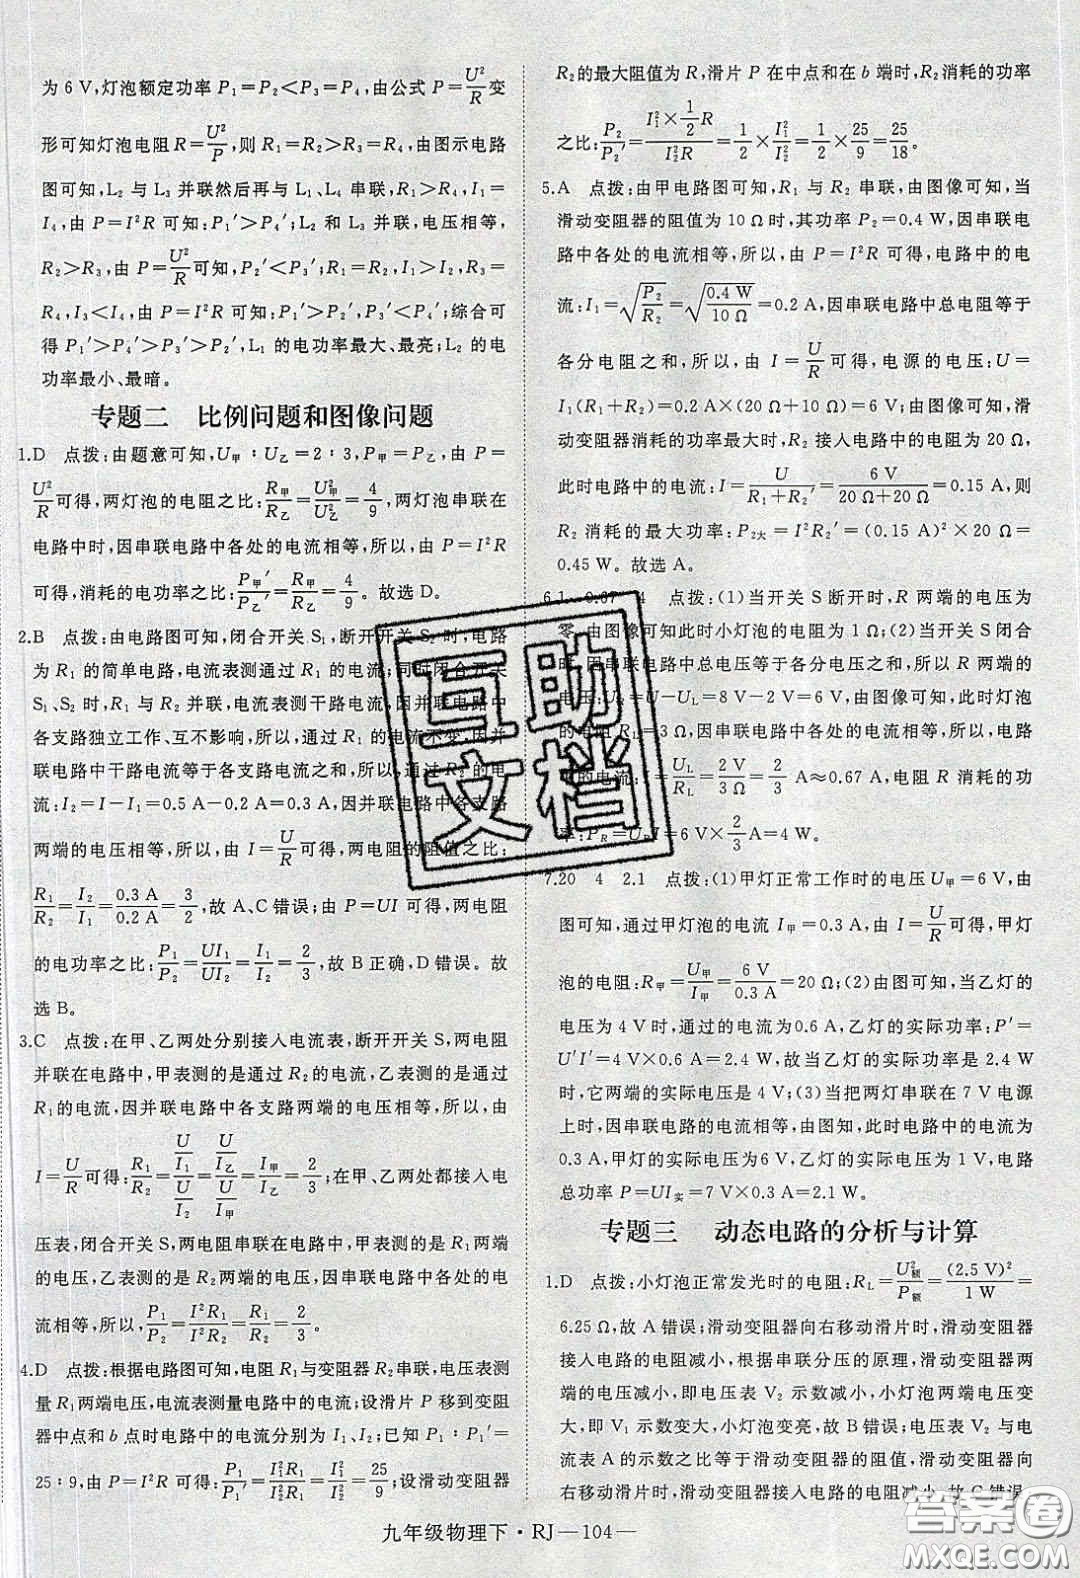 为 6 V,灯泡额定功率 P₁=P₂<P₃=P₄,由公式 P=U²/R 变
形可知灯泡电阻 R=U²/P,则 R₁=R₂>R₃=R₄,由图示电路
图可知,L₂ 与 L₃ 并联然后再与 L₁、L₄ 串联,R₁>R₄,I₁=
I₄,由 P=I²R 可知:P₁′>P₄′;L₂ 和 L₃ 并联,电压相等,
R₂>R₃,由 P=U²/R 可知,P₂′<P₃′;R₃=
R₄,I₃<I₄,由 P=I²R 可知:P₃′<P₄′;综合可
得 P₁′>P₄′>P₃′>P₂′,L₁ 的电功率最大、最亮;L₂ 的电
功率最小、最暗。
专题二 比例问题和图像问题
1.D 点拨:由题意可知,U甲∶U乙=2∶3,P甲=P乙,由 P=
U²/R 可得,两灯泡的电阻之比:R甲/R乙=U²甲/U²乙=4/9,两灯泡串联在
电路中时,因串联电路中各处的电流相等,所以,由 P=I²R
可得,消耗的电功率之比:P甲′/P乙′=R甲/R乙=4/9。故选 D。
2.B 点拨:由电路图可知,闭合开关 S₁,断开开关 S₂ 时,电路
为 R₁ 的简单电路,电流表测通过 R₁ 的电流;同时闭合开关
S₁、S₂ 时,R₁ 与 R₂ 并联,电流表测干路电流,因并联电路中
各支路独立工作、互不影响,所以,通过 R₁ 的电流不变,因并
联电路中干路电流等于各支路电流之和,所以,通过 R₂ 的电
流:I₂=I-I₁=0.5 A-0.2 A=0.3 A,因并联电路中各支路
两端的电压相等,所以,由 I=U/R 可得,两电阻的阻值之比:
R₁/R₂=I₂/I₁=0.3 A/0.2 A=3/2,故 A、C 错误;由 P=UI 可得,两电阻
的电功率之比:P₁/P₂=UI₁/UI₂=I₁/I₂=2/3,故 B 正确,D 错误。故
选 B。
3.C 点拨:在甲、乙两处分别接入电流表,断开开关 S,两电阻
并联在电路中,甲表测的是通过 R₂ 的电流,乙表测的是通过
R₁的电流,因并联电路中各支路两端的电压相等,所以,由
I=U/R可得:R₁/R₂=(U/I₁)/(U/I₂)=(U/I乙)/(U/I甲)=I甲/I乙=2/3;在甲、乙两处都接入电
压表,闭合开关 S,两电阻串联在电路中,甲表测的是 R₁ 两端
的电压,乙表测的是 R₂ 两端的电压,因串联电路中各处的电
流相等,所以,P₁/P₂=I²R₁/I²R₂=R₁/R₂=2/3。
4.D 点拨:根据电路图可知,电阻 R₁与变阻器 R₂串联,电压表测
量 R₁两端电压,电流表测量电路中的电流;设滑片 P 移到变阻
器中点和 b 点时电路中的电流分别为 I₁、I₂;已知 P₁∶P₁′=
25∶9,由 P=I²R 可得:P₁/P₁′=I₁²R₁/I₂²R₁=I₁²/I₂²=25/9;设滑动变阻器
R₂的最大阻值为 R,滑片 P 在中点和在 b 端时,R₂消耗的功率
之比:P₂/P₂′=(I₁²×1/2R)/(I₂²R)=1/2×I₁²/I₂²=1/2×25/9=25/18。
5.A 点拨:由甲电路图可知,R₁ 与 R₂ 串联,由图像可知,当
滑动变阻器的阻值为 10 Ω时,其功率 P₂=0.4 W,因串联电
路中各处的电流相等,所以,由 P=I²R 可得,电路中的电
流:I₁=√(P₂/R₂)=√(0.4 W/10 Ω)=0.2 A,因串联电路中总电阻等于
各分电阻之和,所以,由 I=U/R 可得,电源的电压:U=
I₁(R₁+R₂)=0.2 A×(20 Ω+10 Ω)=6 V;由图像可知,滑
动变阻器消耗的功率最大时,R₂ 接入电路中的电阻为 20 Ω,
此时电路中的电流:I=U/(R₁+R₂′)=6 V/(20 Ω+20 Ω)=0.15 A,则
R₂ 消耗的最大功率:P₂大=I²R₂′=(0.15 A)²×20 Ω=
0.45 W。故选 A。
6.1 0.67 4 点拨:(1)当开关 S断开时,R 两端的电压为
零,由图像可知此时小灯泡的电阻为 1 Ω;(2)当开关 S闭合
时,因串联电路中总电压等于各分电压之和,所以 R 两端的
电压:UR=U-UL=8 V-2 V=6 V,由图像可知,此时灯泡
的电阻 RL=3 Ω,因串联电路中各处的电流相等,所以,电路
中的电流:I=UL/RL=2 V/3 Ω=2/3 A≈0.67 A,电阻 R 消耗的功
率:PR=URI=6 V×2/3A=4 W。
7.20 4 2.1 点拨:(1)甲灯正常工作时的电压 U甲=6 V,由
图可知,通过甲灯泡的电流 I甲=0.3 A,由 I=U/R可得,甲灯
泡的电阻:R甲=U甲/I甲=6 V/0.3 A=20 Ω;(2)由图可知,当乙灯
的电压为 4 V时,通过的电流为0.6 A,乙灯的实际功率:P′=
U′I′=4 V×0.6 A=2.4 W,故当乙灯的实际功率是 2.4 W
时,它两端的实际电压是 4 V;(3)当把两灯串联在 7 V 电源
上时,因串联电路的电流相等,由图可知,此时电路中的电流为
0.3 A,甲灯的实际电压为6 V,乙灯的实际电压为 1 V,电路
总功率 P=UI实=7 V×0.3 A=2.1 W。
专题三 动态电路的分析与计算
1.D 点拨:小灯泡正常发光时的电阻:RL=U²额/P额=(2.5 V)²/1 W=
6.25 Ω,故 A 错误;滑动变阻器向右移动滑片时,滑动变阻器
接入电路的电阻减小,根据串联分压的原理,滑动变阻器两
端的电压减小,即电压表 V₂ 示数减小,小灯泡两端电压变
大,即 V₁ 示数变大,小灯泡变亮,故 B 错误;电压表 V₂ 与电
流表 A 的示数之比等于滑动变阻器的阻值,滑动变阻器向
右移动滑片时,滑动变阻器接入电路的电阻减小,故 C 错误
九年级物理下·RJ—104—
互助
文档
答案圈
MXQE.COM